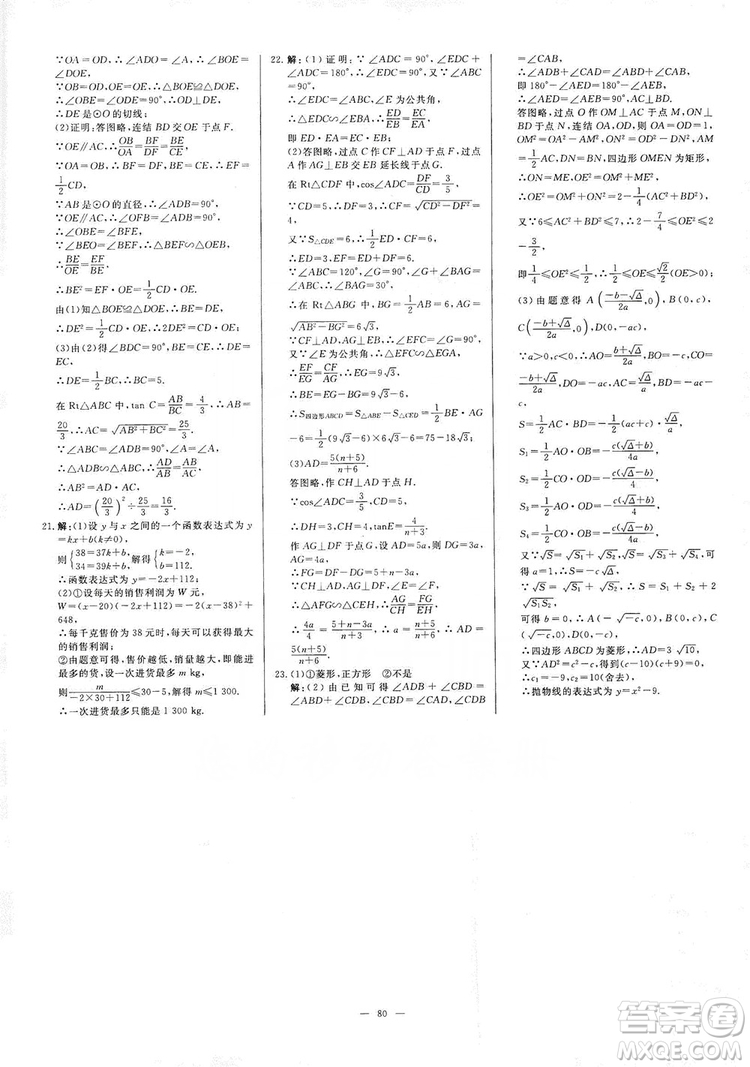 ∵OA=OD,∴∠ADO=∠A,∴∠BOE=
∠DOE,
∵OB=OD,∴△BOE≌△DOE,
∴∠OBE=∠ODE=90°,∴OD⊥DE,
∴DE是⊙O的切线;
(2)证明:答图略,连结BD交OE于点F.
∵OE∥AC,∴OB/OA=BF/DF=BE/CE,
∵OA=OB,∴BF=DF,BE=CE,∴EF=
1/2CD,
∵AB是⊙O的直径,∴∠ADB=90°,
∵OE∥AC,∴∠OFB=90°,
∴∠OBE=∠BFE,
∵∠BEO=∠BEF,∴△BEF∽△OEB,
∴BE/OE=EF/BE,
∴BE²=EF·OE,∴BE²=1/2CD·OE,
由(1)知△BOE≌△DOE,∴DE=BE,
∴DE²=1/2CD·OE,∴2DE²=CD·OE;
(3)由(2)得∠BDC=90°,BE=CE,∴DE=
EC,
∴DE=1/2BC,∴BC=5.
在Rt△ABC中,tan C=AB/BC=4/3,∴AB=
20/3,∴AC=√(AB²+BC²)=25/3,
∵∠ADB=∠ABC=90°,∠A=∠A,
∴△ABD∽△ACB,∴AD/AB=AB/AC,
∴AB²=AD·AC,
∴AD=(20/3)²÷25/3=16/3.
21.解:(1)设y与x之间的一个函数表达式为y
=kx+b(k≠0),
则{38=37k+b, 34=39k+b,解得{k=-2, b=112,
∴函数表达式为y=-2x+112;
(2)①设每天的销售利润为W元,
W=(x-20)(-2x+112)=-2(x-38)²+
648,
∴每千克售价为38元时,每天可以获得最大
的销售利润;
②由题意可得,售价越低,销量越大,即能进最
多的货,设一次进货最多m kg,
则m/(-2×30+112)≤30-5,解得m≤1 300,
∴一次进货最多只能是1 300 kg.
22.解:(1)证明:∵∠ADC=90°,∠EDC+
∠ADC=180°,∴∠EDC=90°,又∵∠ABC=
90°,
∴∠EDC=∠ABC,∠E为公共角,
∴△EDC∽△EBA,∴ED/EB=EC/EA,
即ED·EA=EC·EB;
(2)答图略,过点C作CF⊥AD于点F,过点
A作AG⊥EB交EB延长线于点G.
在Rt△CDF中,cos∠ADC=DF/CD=3/5,
∵CD=5,∴DF=3,∴CF=√(CD²-DF²)=
4,
又∵S△CDE=6,∴1/2ED·CF=6,
∴ED=3,EF=ED+DF=6.
∵∠ABC=120°,∠G=90°,∠G+∠BAG=
∠ABC,∴∠BAG=30°,
∴在Rt△ABG中,BG=1/2AB=6,AG=
√(AB²-BG²)=6√3,
∵CF⊥AD,AG⊥EB,∴∠EFC=∠G=90°,
又∵∠E为公共角,∴△EFC∽△EGA,
∴EF/EG=CF/AG,∴EG=9√3,
∴BE=EG-BG=9√3-6,
∴S四边形ABCD=S△ABE-S△CED=1/2BE·AG
-6=1/2(9√3-6)×6√3-6=75-18√3;
(3)AD=5(n+5)/(n+6),
答图略,作CH⊥AD于点H.
∵cos∠ADC=3/5,CD=5,
∴DH=3,CH=4,tan E=4/(n+3).
作AG⊥DF于点G,设AD=5a,则DG=3a,
AG=4a,
∴FG=DF-DG=5+n-3a,
∵CH⊥AD,AG⊥DF,∠E=∠F,
∴△AFG∽△CEH,∴AG/CH=FG/EH,
∴4a/4=(5+n-3a)/(n+3),∴a=(n+5)/(n+6),∴AD=5a=
5(n+5)/(n+6).
23.(1)①菱形,正方形 ②不是
解:(2)由已知可得∠ADB+∠CBD=
∠ABD+∠CDB,∠CBD=∠CAD,∠CDB
=∠CAB,
∴∠ADB+∠CAD=∠ABD+∠CAB,
即180°-∠AED=180°-∠AEB,
∴∠AED=∠AEB=90°,AC⊥BD.
答图略,过点O作OM⊥AC于点M,ON⊥
BD于点N,连结OA,OD,则OA=OD=1,
OM²=OA²-AM²,ON²=OD²-DN²,AM
=1/2AC,DN=1/2BD,四边形OMEN为矩形,
∴ON=ME,OE²=OM²+ME²,
∴OE²=OM²+ON²=2-1/4(AC²+BD²),
又∵6≤AC²+BD²≤7,∴2-7/4≤OE²≤2-
3/2,
即1/4≤OE²≤1/2,∴1/2≤OE≤√2/2(OE>0).
(3)由题意得A((-b-√Δ)/2a,0),B(0,c),
C((-b+√Δ)/2a,0),D(0,-ac).
∵a>0,c<0,∴AO=(b+√Δ)/2a,BO=-c,CO=
(-b+√Δ)/2a,DO=-ac,AC=√Δ/a,BD=-ac-c,
S=1/2AC·BD=-1/2(ac+c)·√Δ/a,
S₁=1/2AO·OB=-c(√Δ+b)/4a,
S₂=1/2CO·OD=-c(√Δ-b)/4,
S₃=1/2AO·OD=-c(√Δ+b)/4,
S₄=1/2CO·OB=-c(√Δ-b)/4a,
又∵√S=√S₁+√S₂,√S=√S₃+√S₄,可
得a=1.
∴S=-c√Δ,S₁=-c(√Δ+b)/4,S₄=-c(√Δ-b)/4,
∵√S=√S₁+√S₂,∴S=S₁+S₂+
2√(S₁S₂),
可得b=0,∴A(-√-c,0),B(0,c),C
(√-c,0),D(0,-c),
∴四边形ABCD为菱形,∴4AD=12√10,
又∵AD²=c²-c,∴c²-c=90(c<0),
∴c₁=-9,c₂=10(舍去),
∴抛物线的表达式为y=x²-9.
— 80 —
答案圈
MXQE.COM